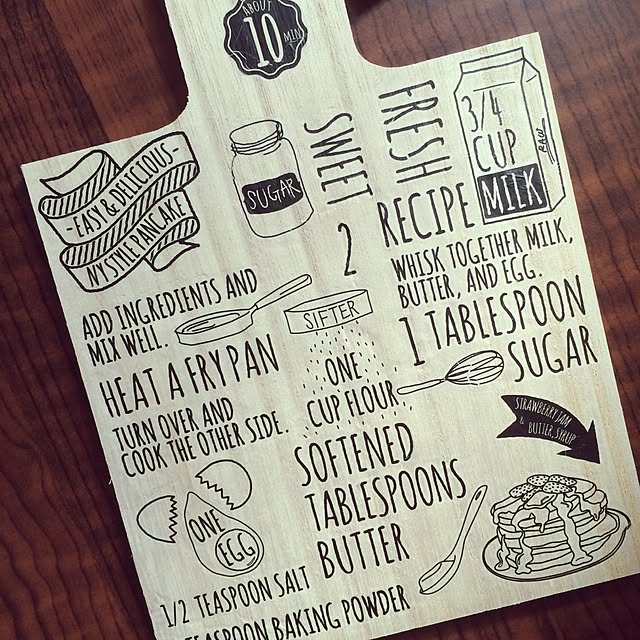 ABOUT
10
MIN
-EASY & DELICIOUS-
NY STYLE PANCAKE
SUGAR
SWEET
FRESH
RECIPE
3/4
CUP
MILK
RAW
WHISK TOGETHER MILK,
BUTTER, AND EGG.
1 TABLESPOON
SUGAR
ADD INGREDIENTS AND
MIX WELL.
HEAT A FRY PAN
TURN OVER AND
COOK THE OTHER SIDE.
2
SIFTER
ONE
CUP FLOUR
SOFTENED
TABLESPOONS
BUTTER
STRAWBERRY JAM
& BUTTER, SYRUP
ONE
EGG
1/2 TEASPOON SALT
TEASPOON BAKING POWDER